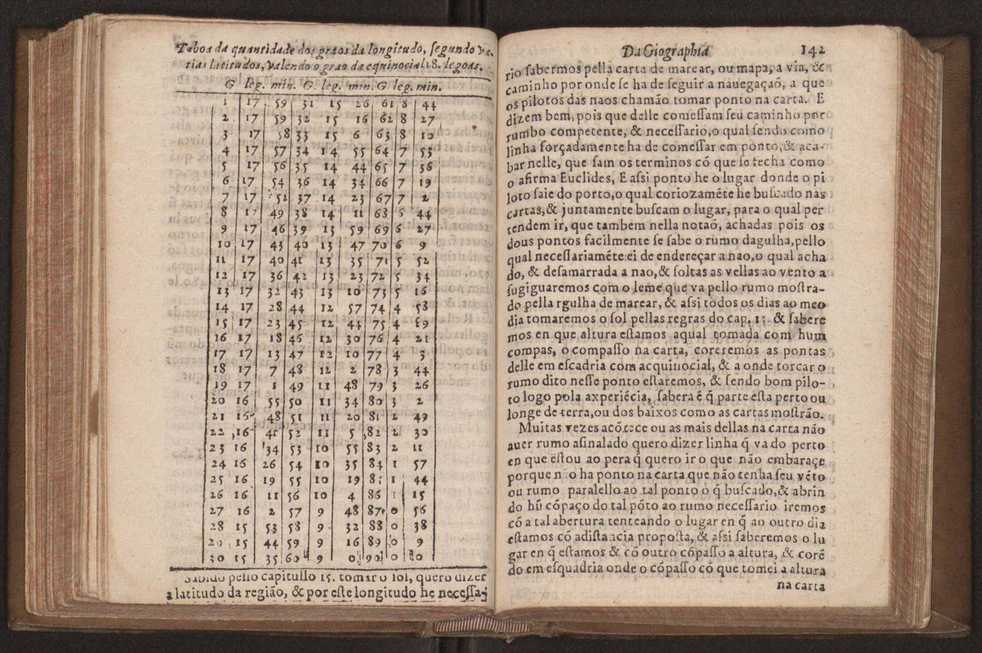 Taboa da quantidade dos graos da longitudo, segundo va-
rias latitudos, valendo o grao da equinocial 18. legoas.
G leg. min. G. leg. min. G leg. min.
1 17 59 31 15 26 61 8 44
2 17 59 32 15 16 62 8 27
3 17 58 33 15 6 63 8 10
4 17 57 34 14 55 64 7 53
5 17 56 35 14 44 65 7 36
6 17 54 36 14 34 66 7 19
7 17 52 37 14 23 67 7 2
8 17 49 38 14 11 68 6 44
9 17 46 39 13 59 69 6 27
10 17 43 40 13 47 70 6 9
11 17 40 41 13 35 71 5 52
12 17 36 42 13 23 72 5 34
13 17 32 43 13 10 73 5 16
14 17 28 44 12 57 74 4 58
15 17 23 45 12 44 75 4 39
16 17 18 46 12 30 76 4 21
17 17 13 47 12 10 77 4 3
18 17 7 48 12 2 78 3 44
19 17 1 49 11 48 79 3 26
20 16 55 50 11 34 80 3 2
21 16 48 51 11 20 81 2 49
22 16 41 52 11 5 82 2 30
23 16 34 53 10 55 83 2 11
24 16 26 54 10 35 84 1 57
25 16 19 55 10 19 85 1 44
26 16 11 56 10 4 86 1 15
27 16 2 57 9 48 87 0 56
28 15 53 58 9 32 88 0 38
29 15 44 59 9 16 89 0 9
30 15 35 60 9 0 90 0 0
Sabido pello capitullo 15. tomar o sol, quero dizer
a latitudo da região, & por este longitudo he necessa-
Da Giographia 142
rio sabermos pella carta de marcar, ou mapa, a via, &
caminho por onde se ha de seguir a nauegaçaõ, a que
os pilotos das naos chamão tomar ponto na carta. E
dizem bem, pois que delle comessam seu caminho por
rumbo competente, & necessario, o qual sendo como
linha forçadamente ha de comessar em ponto, & aca-
bar nelle, que sam os terminos cõ que se fecha como
o afirma Euclides, E assi ponto he o lugar donde o pi
loto saie do porto, o qual coriozamẽte he buscado nas
cartas, & juntamente buscam o lugar, para o qual per
tendem ir, que tambem nella notaõ, achadas pois os
dous pontos facilmente se sabe o rumo dagulha, pello
qual necessariamẽte ei de endereçar a nao, o qual acha
do, & desamarrada a nao, & soltas as vellas ao vento a
sugiguaremos com o leme, que va pello rumo mostra-
do pella rgulha de marear, & assi todos os dias ao meo
dia tomaremos o sol pellas regras do cap. 15 & sabere
mos en que altura estamos aqual tomada com hum
compas, o compasso na carta, correremos as pontas
delle em escadria com acquinocial, & a onde torcar o
rumo dito nesse ponto estaremos, & sendo bom pilo-
to logo pola axperiécia, sabera é q̃ parte esta perto ou
longe de terra, ou dos baixos como as cartas mostrão.
Muitas vezes acõtece ou as mais dellas na carta não
auer rumo asinalado quero dizer linha q̃ va do perto
en que estou ao pera q̃ quero ir o que não embaraçe
porque n o ha ponto na carta que não tenha seu vẽto
ou rumo paralello ao tal ponto o q̃ buscado, & abrin
do hũ cõpaço do tal põto ao rumo necessario iremos
cõ a tal abertura tenteando o lugar en q̃ ao outro dia
estamos cõ adista acia proposta, & assi saberemos o lu
gar en q̃ estamos & cõ outro cõpasso a altura, & corẽ
do em esquadria onde o cõpasso cõ que tomei a altura
na carta